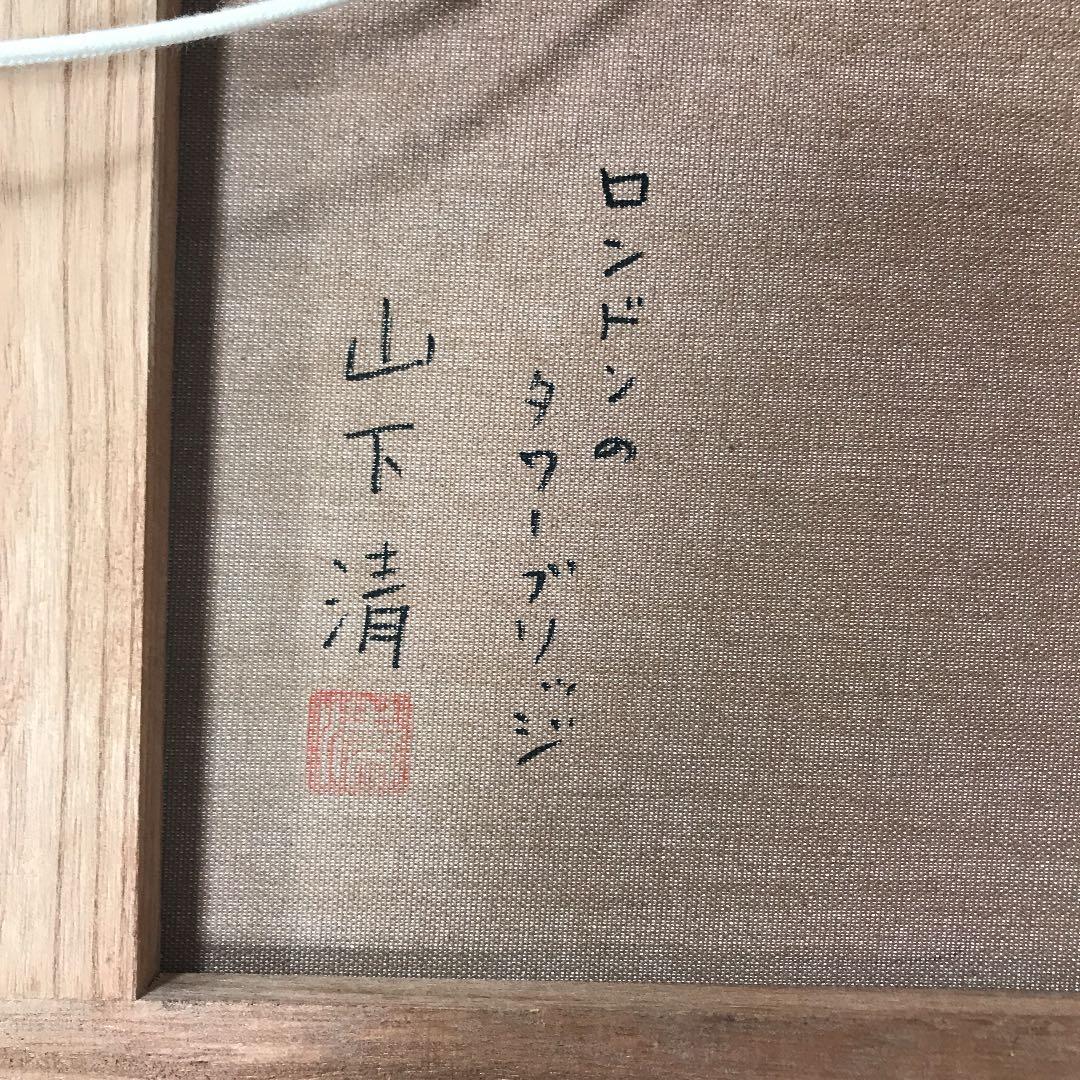 ロンドンの
タワーブリッジ
山下清